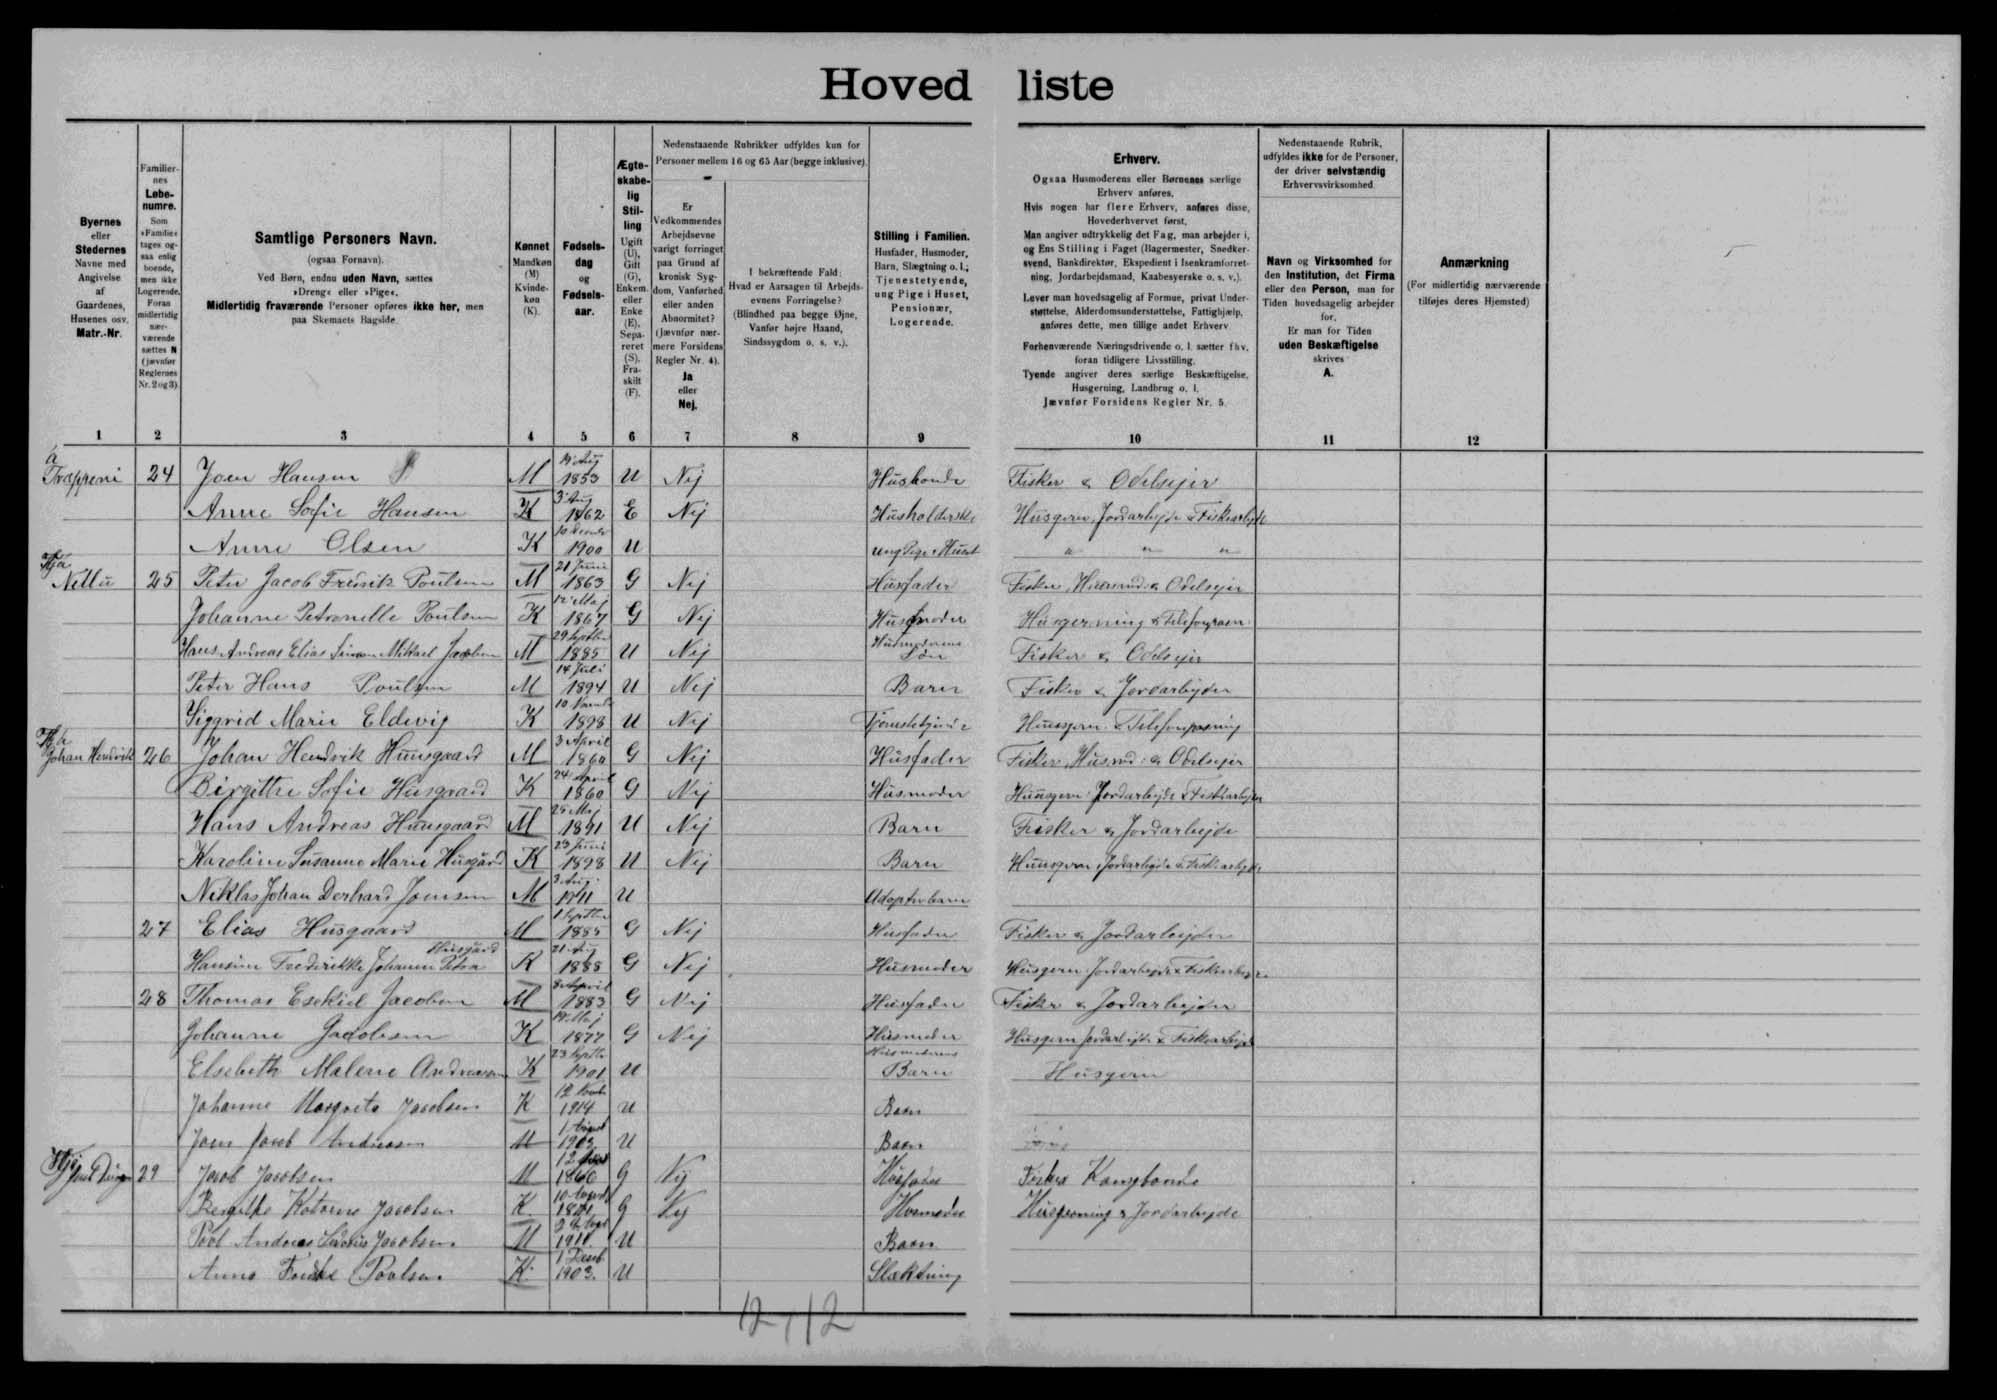 Hoved liste
Byernes
eller
Stedernes
Navne med
Angivelse
af
Gaardenes,
Husenes osv.
Matr.-Nr.
Familier-
nes
Løbe-
numre.
Som
»Familie«
tages og-
saa enlig
boende,
men ikke
Logerende.
Foran
midlertidig
nær-
værende
sættes N
(jævnfør
Reglernes
Nr. 2 og 3).
Samtlige Personers Navn.
(ogsaa Fornavn).
Ved Børn, endnu uden Navn, sættes
»Dreng« eller »Pige«.
Midlertidig fraværende Personer opføres ikke her, men
paa Skemaets Bagside.
Kønnet
Mandkøn
(M)
Kvinde-
køn
(K).
Fødsels-
dag
og
Fødsels-
aar.
Ægte-
skabe-
lig
Stil-
ling
Ugift
(U),
Gift
(G),
Enkem.
eller
Enke
(E),
Sepa-
reret
(S).
Fra-
skilt
(F).
Nedenstaaende Rubrikker udfyldes kun for
Personer mellem 16 og 65 Aar (begge inklusive).
Er
Vedkommendes
Arbejdsevne
varigt forringet
paa Grund af
kronisk Syg-
dom, Vanførhed
eller anden
Abnormitet?
(Jævnfør nær-
mere Forsidens
Regler Nr. 4).
Ja
eller
Nej.
I bekræftende Fald:
Hvad er Aarsagen til Arbejds-
evnens Forringelse?
(Blindhed paa begge Øjne,
Vanfør højre Haand,
Sindssygdom o. s. v.).
Stilling i Familien.
Husfader, Husmoder,
Barn, Slægtning o. l.;
Tjenestetyende,
ung Pige i Huset,
Pensionær,
Logerende.
Erhverv.
Ogsaa Husmoderens eller Børnenes særlige
Erhverv anføres.
Hvis nogen har flere Erhverv, anføres disse,
Hovederhvervet først.
Man angiver udtrykkelig det Fag, man arbejder i,
og Ens Stilling i Faget (Bagermester, Snedker-
svend, Bankdirektør, Ekspedient i Isenkramforret-
ning, Jordarbejdsmand, Kaabesyerske o. s. v.).
Lever man hovedsagelig af Formue, privat Under-
støttelse, Alderdomsunderstøttelse, Fattighjælp,
anføres dette, men tillige andet Erhverv
Forhenværende Næringsdrivende o. l. sætter fhv.
foran tidligere Livsstilling.
Tyende angiver deres særlige Beskæftigelse,
Husgerning, Landbrug o. l.
Jævnfør Forsidens Regler Nr. 5.
Nedenstaaende Rubrik,
udfyldes ikke for de Personer,
der driver selvstændig
Erhvervsvirksomhed.
Navn og Virksomhed for
den Institution, det Firma
eller den Person, man for
Tiden hovedsagelig arbejder
for.
Er man for Tiden
uden Beskæftigelse
skrives
A.
Anmærkning
(For midlertidig nærværende
tilføjes deres Hjemsted)
1 2 3 4 5 6 7 8 9 10 11 12
24 Joen Hansen M 1853 U Nej Husbonde Fisker & Odelsejer
Anne Sofie Hansen K 3 Aug 1862 E Nej Husholderske Husgern. Jordarbejde & Fiskearbejde
Anne Olsen K 1900 U ung Pige i Huset " " "
25 Peter Jacob Fredrik Poulsen M 21 Juni 1863 G Nej Husfader Fisker & Odelsejer
Johanne Petronelle Poulsen K 12 Maj 1867 G Nej Husmoder Husgerning &
Hans Andreas Elias Simon Mikael Jacobsen M 29 Septbr 1885 U Nej Husmoderens Søn Fisker & Odelsejer
Peter Hans Poulsen M 14 Juli 1894 U Nej Barn Fisker & Jordarbejder
Siggrid Marie Eldevig K 1898 U Nej Husgern. &
Johan Hendrik 26 Johan Hendrik Huusgaard M 3 April 1860 G Nej Husfader Fisker & Odelsejer
Birgitthe Sofie Husgaard K 24 April 1860 G Nej Husmoder Huusgern. Jordarbejde & Fiskearbejde
Hans Andreas Huusgaard M 25 Maj 1891 U Nej Barn Fisker & Jordarbejde
Karoline Susanne Marie Husgård K 23 Juni 1898 U Nej Barn Huusgern. Jordarbejde & Fiskearbejde
Niklas Johan Joensen M 3 Aug. 1911 U Adoptivbarn
27 Elias Husgaard M 1 Septbr 1885 G Nej Husfader Fisker & Jordarbejder
Hansine Frederikke Johanne Petra Husgård K 21 Aug 1888 G Nej Husmoder Husgern. Jordarbejde & Fiskearbejde
28 Thomas Esekiel Jacobsen M April 1883 G Nej Husfader Fisker & Jordarbejder
Johanne Jacobsen K Maj 1877 G Nej Husmoder Husgern Jordarbejde & Fiskearbejde
Elsebeth Malene Andreasen K 23 Septbr 1901 U Husmoderens Barn Husgern
Johanne Margreta Jacobsen K 12 1914 U Barn
Joen Jacob Andreasen M 1903 U Barn
29 Jacob Jacobsen M 12 G Nej Husfader Fisker Kongsbonde
Katrine Jacobsen K. G Nej Husmoder Husgerning & Jordarbejde
Poul Andreas Jacobsen M 1911 U Barn
Anna Poulsen K. 1 Decb 1903. U Slæktning
12 12